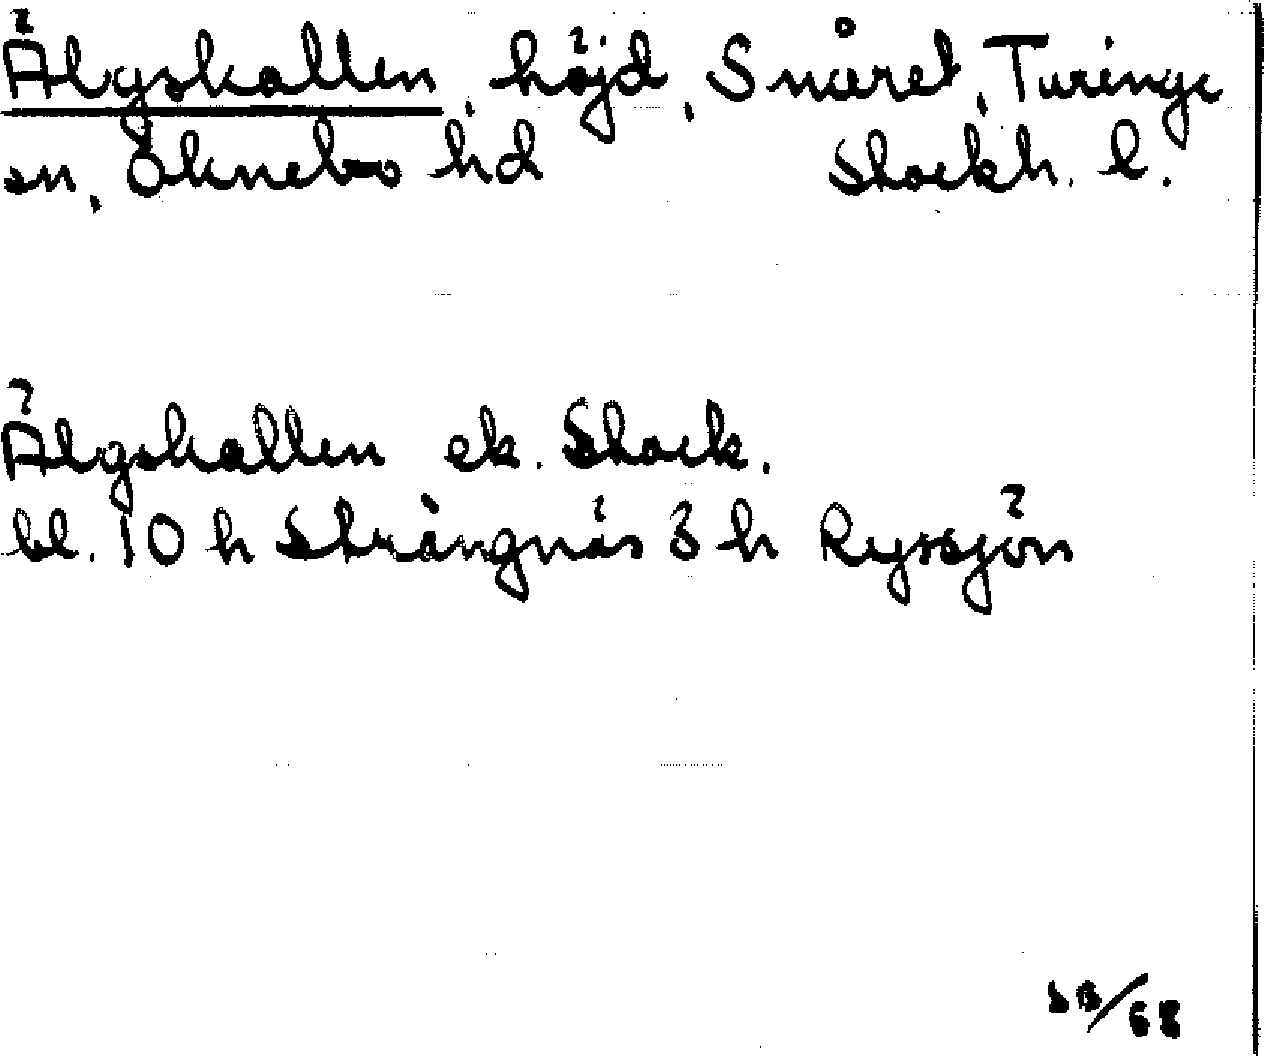 Älgskallen, höjd, Snåret, Turinge
sn, Öknebo hd Stockh. l.
Älgskallen ek. Stock.
bl. 10 h Strängnäs 3 h Ryssjön
SB/68